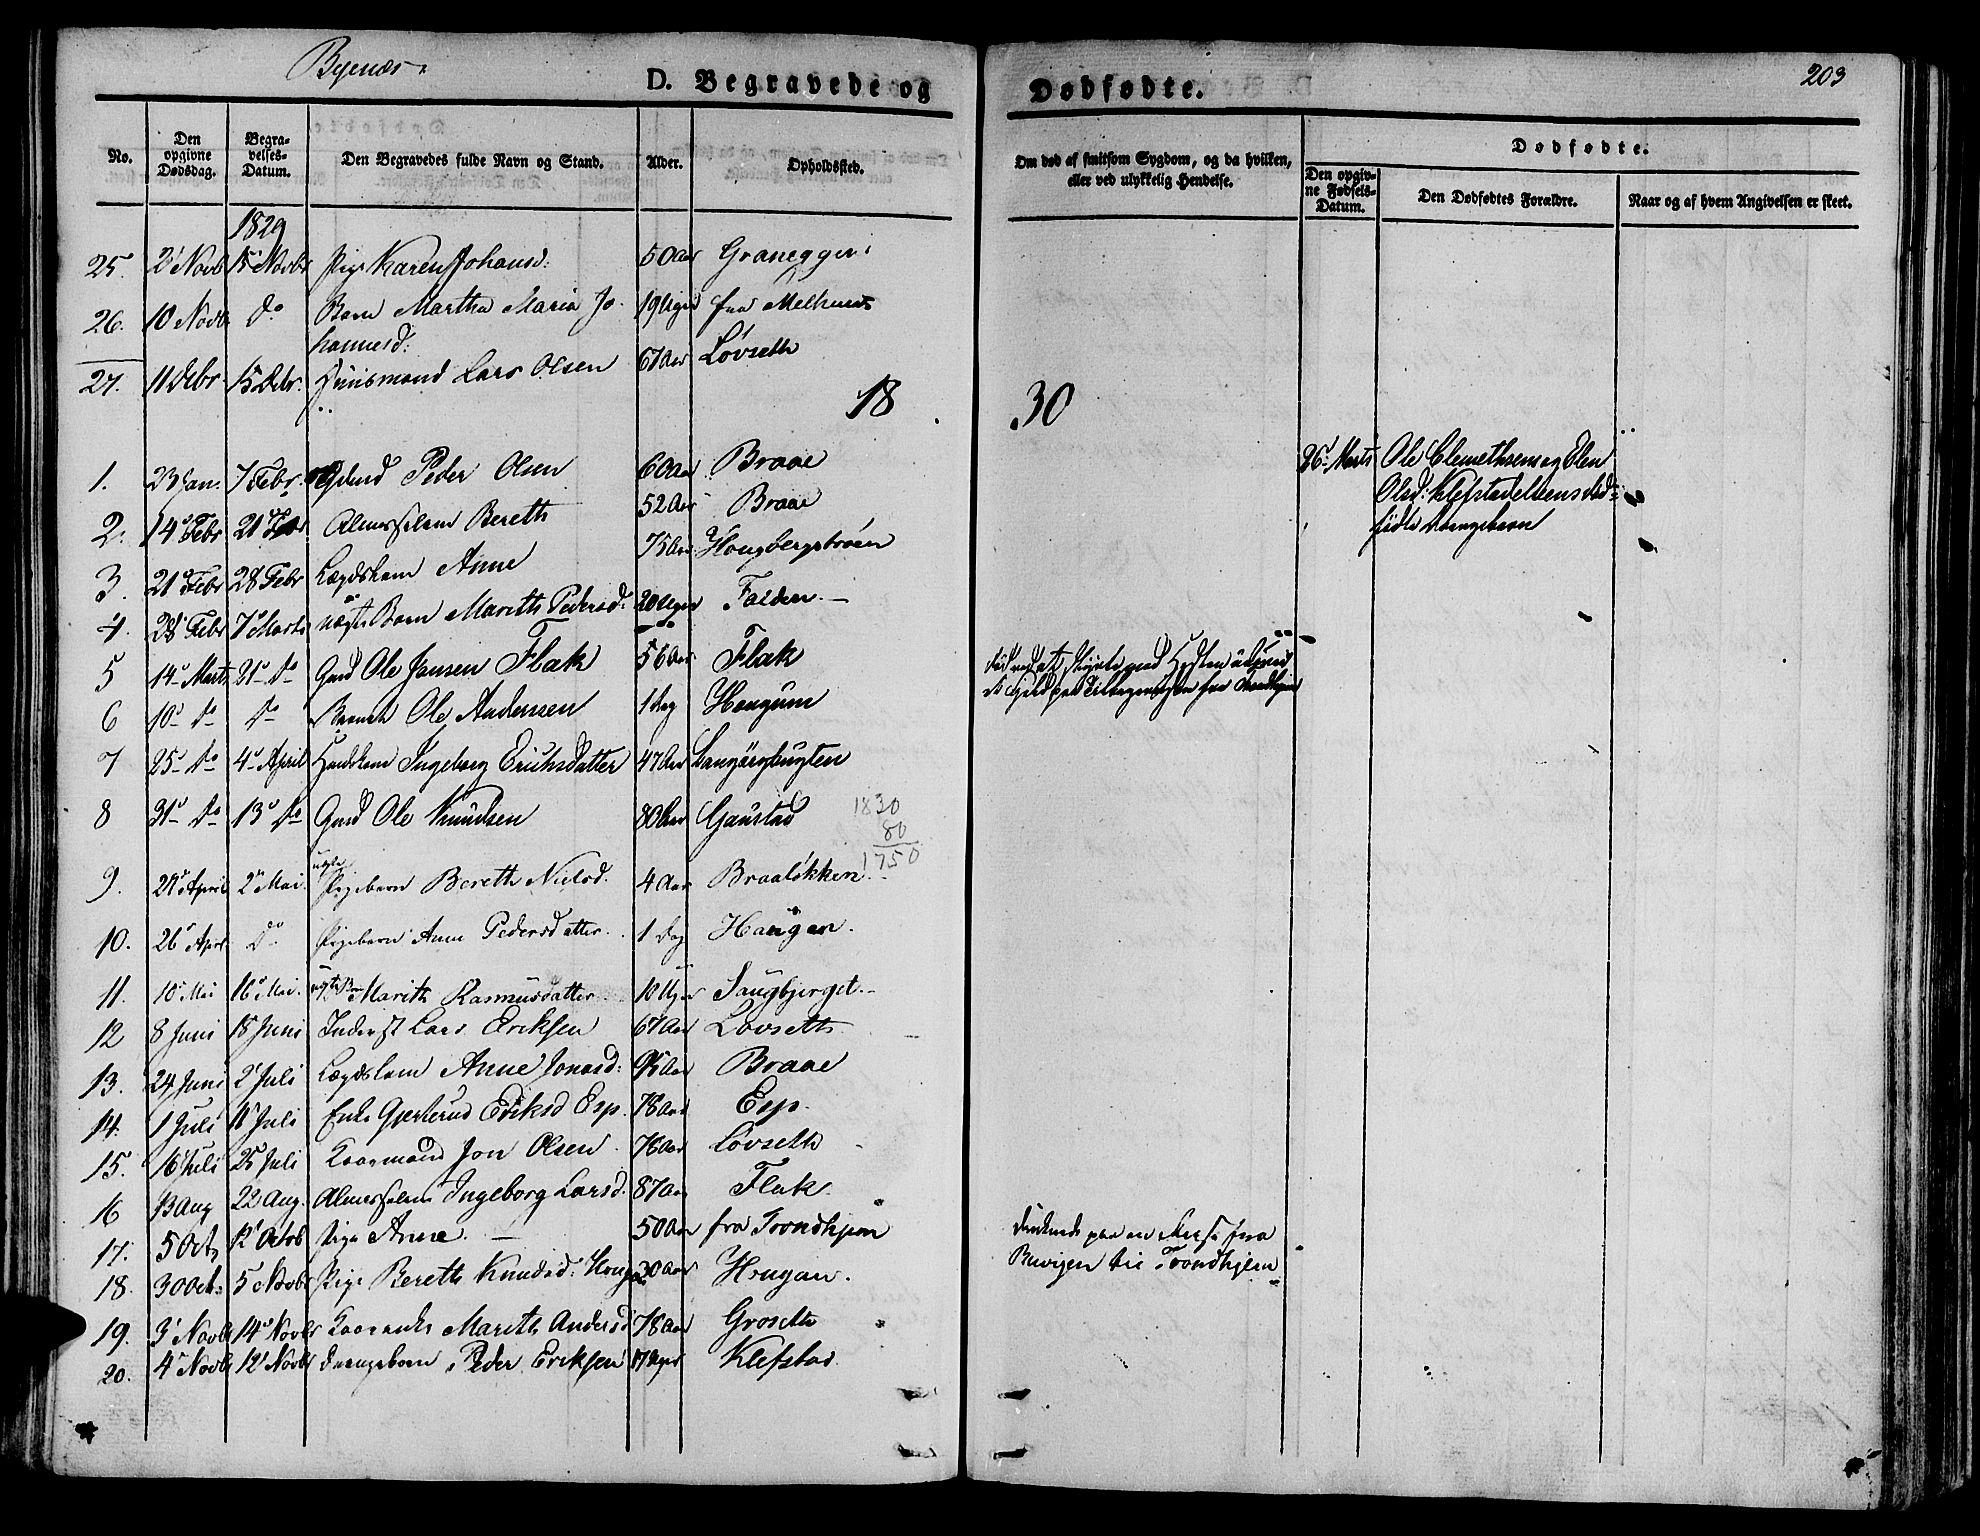 Byenæs
203
D. Begravede og Dødfødte.
No.
Den opgivne Dødsdag.
Begravelses-Datum.
Den Begravedes fulde Navn og Stand.
Alder.
Opholdssted.
Om død af smitsom Sygdom, og da hvilken,
eller ved ulykkelig Hendelse.
Dødfødte.
Den opgivne Fødsels-Datum.
Den Dødfødtes Forældre.
Naar og af hvem Angivelsen er skeet.
1829
25. 2 Novb 15 Novbr Pige Karen Johansd: 50 Aar
26. 10 Novb do Barn Martha Maria Jo- 19 Uger fra Melhuus
hannesd:
27. 11 Debr 15 Debr. Huusmand Lars Olsen 67 Aar Løvseth
1830
1. 23 Jan. 7 Febr. Peder Olsen 60 Aar Braae
26 Marts Ole Clemethsens og Elen
Olsd: Klefstadeiens død-
fødte Drengebarn
2. 14 Febr 21 Febr Almisselem Bereth 52 Aar Braae
3. 21 Febr 28 Febr Lægdslem Anne 75 Aar
4 28 Febr 7 Marts uægte Barn Marith Pedersd: 20 Uger Falden
5 14 Marts 21 do Gmd Ole Jansen Flak 56 Aar Flak
6 10 do do Barnet Ole Anderssen 1 dag Hougum
7 25 do 4 April Ingeborg Erichsdatter 47 Aar
8 31 do 13 do Gmd Ole Knudsen 80 Aar Gaustad
1830
80
1750
9. April 2 Mai. uægte Pigebarn Bereth Nielsd. 4 Aar Braaløkken
10. 26 Apr. do Pigebarn Anne Pedersdatter. 1 Dag Haugan.
11. 10 Mai 16 Mai. uægte Barn Marith Rasmusdatter 10 Uger Saugbjerget
12 8 Juni 15 Juni Inderst Lars Eriksen 67 Aar Løvseth
13. 24 Juni 2 Juli Lægdslem Anne Jonasd: 95 Aar Braae
14. 1 Juli Juli Enke Gjertrud Eriksd Esp. 78 Aar Esp.
15. 16 Juli 25 Juli Kaarmand Jon Olsen 76 Aar Løvseth
16 13 Aug 22 Aug. Almisselem Ingeborg Larsd. 87 Aar Flak.
17. 5 Oct 12 Octob Pige Anne 50 Aar fra Trondhjem
paa en Reise fra
Buvigen til Trondhjem
18. 30 Oct: 5 Novbr Pige Bereth Knudsd: 30 Aar Hougan.
19. 3 Novbr 14 Novbr Kaarenke Marith Andersd 78 Aar Groseth
20. 4 Novbr 12 Novbr Drengebarn Peder Eriksen 17 Uger Klefstad